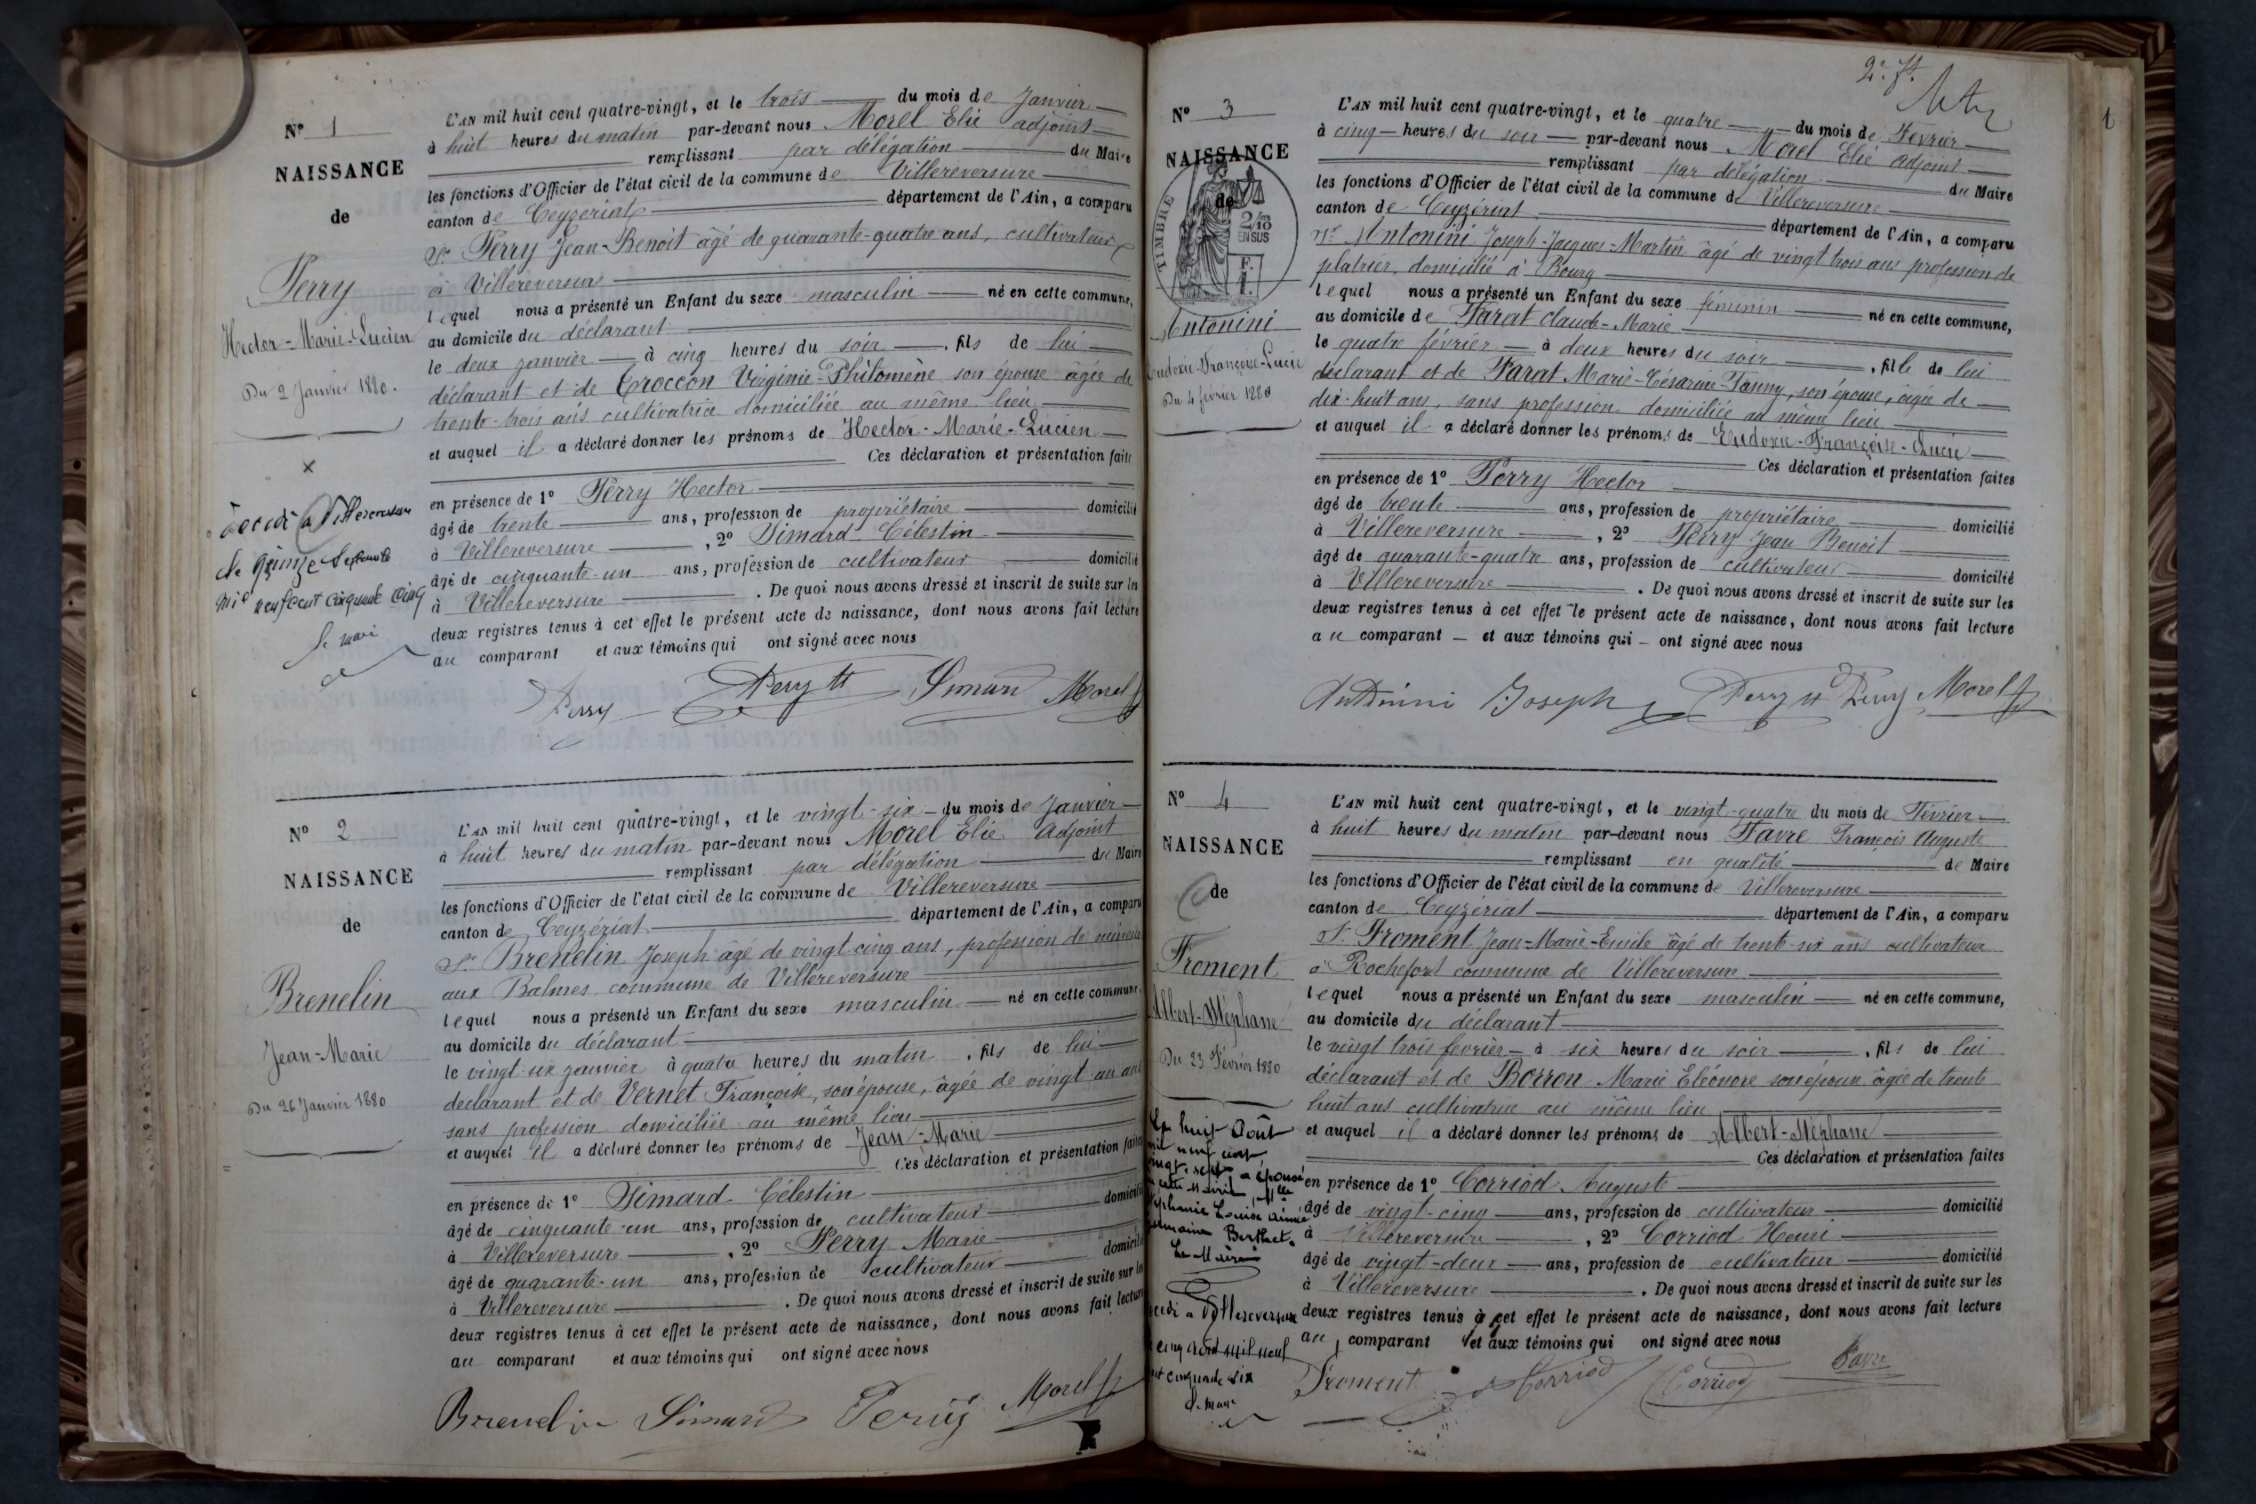 N° 1
NAISSANCE
de
Perry
Hector-Marie-Lucien
Du 2 Janvier 1880.
Décédé à Villereversure
le quinze Septembre
mil neuf cent cinquante cinq
Le maire
L'AN mil huit cent quatre-vingt, et le trois du mois de Janvier
à huit heures du matin par-devant nous Morel Elie adjoint
remplissant par délégation du Maire
les fonctions d'Officier de l'état civil de la commune de Villereversure
canton de Ceyzériat département de l'Ain, a comparu
Sr Perry Jean-Benoit âgé de quarante-quatre ans, cultivateur
à Villereversure
lequel nous a présenté un Enfant du sexe masculin né en cette commune,
au domicile du déclarant
le deux janvier à cinq heures du soir, fils de lui
déclarant et de Croccon Virginie-Philomène son épouse âgée de
trente-trois ans cultivatrice domiciliée au même lieu
et auquel il a déclaré donner les prénoms de Hector-Marie-Lucien
Ces déclaration et présentation faites
en présence de 1° Perry Hector
âgé de trente ans, profession de propriétaire domicilié
à Villereversure, 2° Simard Célestin
âgé de cinquante-un ans, profession de cultivateur domicilié
à Villereversure. De quoi nous avons dressé et inscrit de suite sur les
deux registres tenus à cet effet le présent acte de naissance, dont nous avons fait lecture
au comparant et aux témoins qui ont signé avec nous
Perry Perry H Simard Morel
N° 2
NAISSANCE
de
Brenelin
Jean-Marie
Du 26 Janvier 1880
L'AN mil huit cent quatre-vingt, et le vingt-six du mois de Janvier
à huit heures du matin par-devant nous Morel Elie Adjoint
remplissant par délégation du Maire
les fonctions d'Officier de l'état civil de la commune de Villereversure
canton de Ceyzériat département de l'Ain, a comparu
Sr Brenelin Joseph âgé de vingt-cinq ans, profession de mineur
aux Balmes commune de Villereversure
lequel nous a présenté un Enfant du sexe masculin né en cette commune,
au domicile du déclarant
le vingt-six janvier à quatre heures du matin, fils de lui
declarant et de Vernet Françoise, son épouse, âgée de vingt-un ans
sans profession domiciliée au même lieu
et auquel il a déclaré donner les prénoms de Jean-Marie
Ces déclaration et présentation faites
en présence de 1° Simard Célestin
âgé de cinquante-un ans, profession de cultivateur domicilié
à Villereversure, 2° Perry Marie
âgé de quarante-un ans, profession de cultivateur domicilié
à Villereversure. De quoi nous avons dressé et inscrit de suite sur les
deux registres tenus à cet effet le présent acte de naissance, dont nous avons fait lecture
au comparant et aux témoins qui ont signé avec nous
Brenelin Simard Perry Morel
2e ft.
1
N° 3
NAISSANCE
de
TIMBRE
2/10
EN SUS
F.
1.
Antonini
Eudoxie-Françoise-Lucie
Du 4 février 1880
L'AN mil huit cent quatre-vingt, et le quatre du mois de Février
à cinq heures du soir par-devant nous Morel Elie adjoint
remplissant par délégation du Maire
les fonctions d'Officier de l'état civil de la commune de Villereversure
canton de Ceyzériat département de l'Ain, a comparu
Sr Antonini Joseph-Jacques-Martin âgé de vingt trois ans profession de
platrier, domicilié à Bourg
lequel nous a présenté un Enfant du sexe féminin né en cette commune,
au domicile de Farat Claude-Marie
le quatre février à deux heures du soir, fille de lui
déclarant et de Farat Marie-Césarine-Fanny, son épouse, âgée de
dix-huit ans, sans profession domiciliée au même lieu
et auquel il a déclaré donner les prénoms de Eudoxie-Françoise-Lucie
Ces déclaration et présentation faites
en présence de 1° Perry Hector
âgé de trente ans, profession de propriétaire domicilié
à Villereversure, 2° Perry Jean Benoit
âgé de quarante-quatre ans, profession de cultivateur domicilié
à Villereversure. De quoi nous avons dressé et inscrit de suite sur les
deux registres tenus à cet effet le présent acte de naissance, dont nous avons fait lecture
au comparant et aux témoins qui ont signé avec nous
Antonini Joseph Perry H Perry Morel
N° 4
NAISSANCE
de
Froment
Albert-Stéphane
Du 23 Février 1880
Le huit Août
mil neuf cent
vingt-sept a épousé
en cette Mairie, Mlle
Stéphanie Louise Aimée
Germaine Berthet.
Le Maire
Décédé à Villereversure
le cinq Août mil neuf
cent cinquante six
Le maire
L'AN mil huit cent quatre-vingt, et le vingt-quatre du mois de Février
à huit heures du matin par-devant nous Favre François Auguste
remplissant en qualité de Maire
les fonctions d'Officier de l'état civil de la commune de Villereversure
canton de Ceyzériat département de l'Ain, a comparu
Sr Froment Jean-Marie-Emile âgé de trente-six ans cultivateur
à Rochefort commune de Villereversure
lequel nous a présenté un Enfant du sexe masculin né en cette commune,
au domicile du déclarant
le vingt trois février à six heures du soir, fils de lui
déclarant et de Borron Marie Eléonore son épouse âgée de trente
huit ans cultivatrice au même lieu
et auquel il a déclaré donner les prénoms de Albert-Stéphane
Ces déclaration et présentation faites
en présence de 1° Corriod Auguste
âgé de vingt-cinq ans, profession de cultivateur domicilié
à Villereversure, 2° Corriod Henri
âgé de vingt-deux ans, profession de cultivateur domicilié
à Villereversure. De quoi nous avons dressé et inscrit de suite sur les
deux registres tenus à cet effet le présent acte de naissance, dont nous avons fait lecture
au comparant et aux témoins qui ont signé avec nous
Froment Corriod Corriod Favre